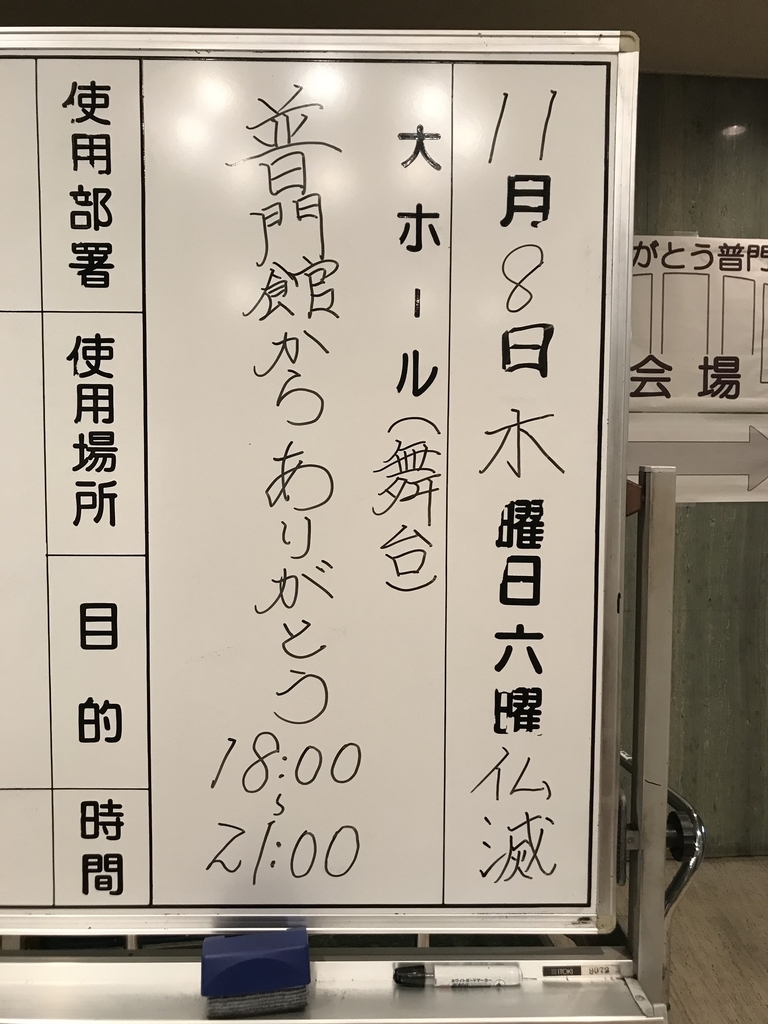 11月8日木曜日六曜仏滅
大ホール(舞台)
普門館からありがとう
18:00
〜
21:00
使用部署
使用場所
目的
時間
がとう普門
会場
ホワイトボードマーカー